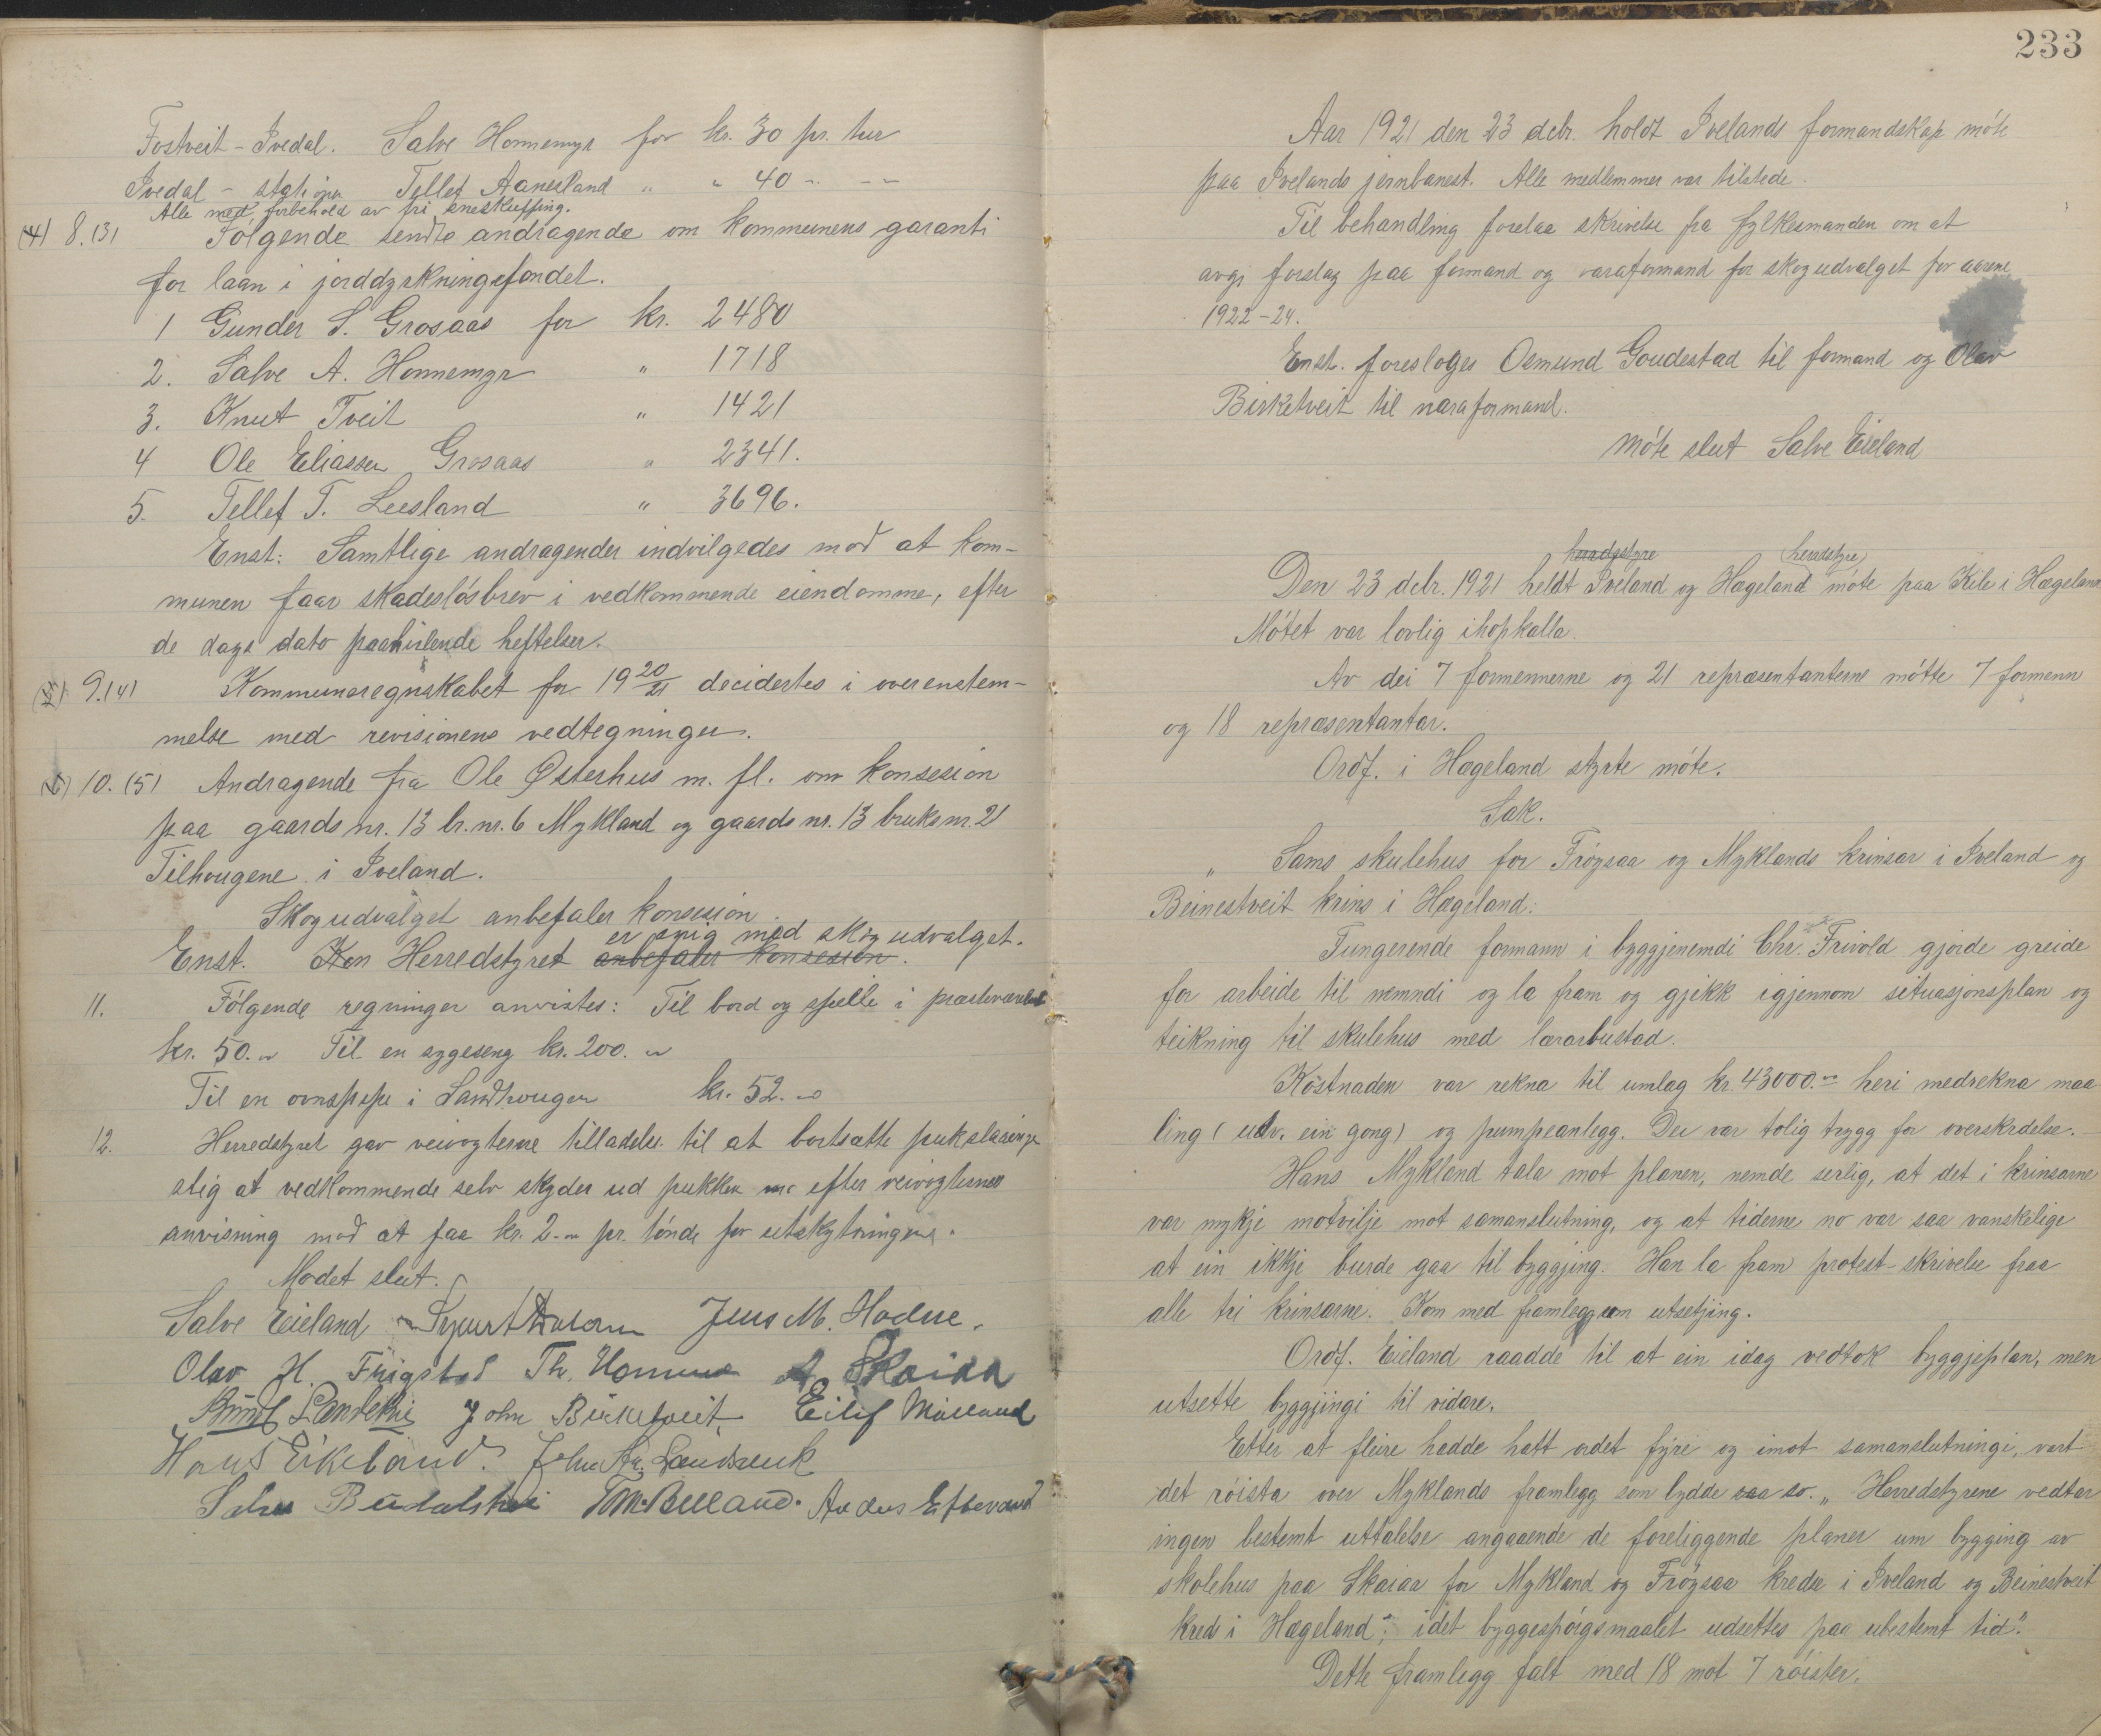 Fostveit - Ivedal. Salve Honnemyr for kr. 30 pr. tur
Ivedal - stationen Tellef Aanesland " " 40 - - -
Alle med forbehold av fri sneskuffing.
(4) 8.(3) Følgende sendte andragende om kommunens garanti
for laan i jorddyrkningsfondet.
1 Gunder S. Grosaas for kr. 2480
2. Salve A. Honnemyr " 1718
3. Knut Tveit " 1421
4 Ole Eliassen Grosaas " 2341.
5. Tellef T. Leesland " 3696.
Enst: Samtlige andragender indvilgedes mod at kom-
munen faar skadesløsbrev i vedkommende eiendomme, efter
de dags dato paahvilende heftelser.
9.(4) Kommuneregnskabet for 19 20/21 decidertes i overenstem-
melse med revisionens vedtegninger.
10. (5) Andragende fra Ole Østerhus m. fl. om konsesion
paa gaards nr. 13 br. nr. 6 Mykland og gaards nr. 13 bruks nr. 21
Tilhougene i Iveland.
Skogudvalget anbefaler konsesion.
er enig med skogudvalget.
Enst. Kon Herredstyret anbefaler konsesion.
11. Følgende regninger anvistes: Til bord og speile i
kr. 50.- Til en sygeseng kr. 200.-
Til en ovnspipe i Landhougen kr. 52.-
12. Herredstyret gav veivogterne tilladelse til at bortsætte pukslaningen
slig at vedkommende selv skyder ud pukken efter veivogternes
anvisning mod at faa kr. 2.- pr. tønde for utskytningen.
Mødet slut.
Salve Eieland Jens M. Hodne.
Olav H. Frigstad Th. Homme A. Skaiaa
John Birketveit Eilif Mølland
Hans Eikeland. John Landsverk
T. M. Bülland.
233
Aar 1921 den 23 debr. holdt Ivelands formandskap møte
paa Ivelands jernbanest. Alle medlemmer var tilstede.
Til behandling forelaa skrivelse fra fylkesmanden om at
avgi forslag paa formand og varaformand for skogudvalget for aarene
1922-24.
Enst. foresloges Osmund Goudestad til formand og Olav
Birketveit til varaformand.
Møte slut Salve Eieland
heradstyre (heradstyre)
Den 23 debr. 1921 heldt Iveland og Hægeland møte paa Kile i Hægeland
Møtet var lovlig ihopkalla.
Av dei 7 formennerne og 21 repræsentanterne møtte 7 formenn
og 18 repræsentantar.
Ordf. i Hægeland styrte møte.
Sak.
" Sams skulehus for Frøysaa og Myklands krinsar i Iveland og
Beinestveit krins i Hægeland.
Fungerende formann i byggjenemdi Chr. Frivold gjorde greide
for arbeide til nemndi og la fram og gjekk igjennom situasjonsplan og
teikning til skulehus med lærarbustad.
Kostnaden var rekna til umlag kr. 43000.- heri medrekna maa-
ling (utv. ein gong) og pumpeanlegg. Dei var tolig trygg for overskridelse.
Hans Mykland tala mot planen, nemde serlig, at det i krinsarne
var mykje motvilje mot samanslutning, og at tiderne no var saa vanskelige
at ein ikkje burde gaa til byggjing. Han la fram protest-skrivelse fraa
alle tri krinsarne. Kom med framlegg um utsetjing.
Ordf. Eieland raadde til at ein idag vedtok byggjeplan, men
utsette byggjingi til vidare.
Etter at fleire hadde hatt ordet fyre og imot samanslutningi, vart
det røista over Myklands framlegg som lydde saa so. " Herredstyrene vedtar
ingen bestemt uttalelse angaaende de foreliggende planer um bygging av
skolehus paa Skaiaa for Mykland og Frøysaa kredse i Iveland og Beinestveit
kreds i Hægeland; idet byggespørgsmaalet udsettes paa ubestemt tid."
Dette framlegg falt med 18 mot 7 røister.